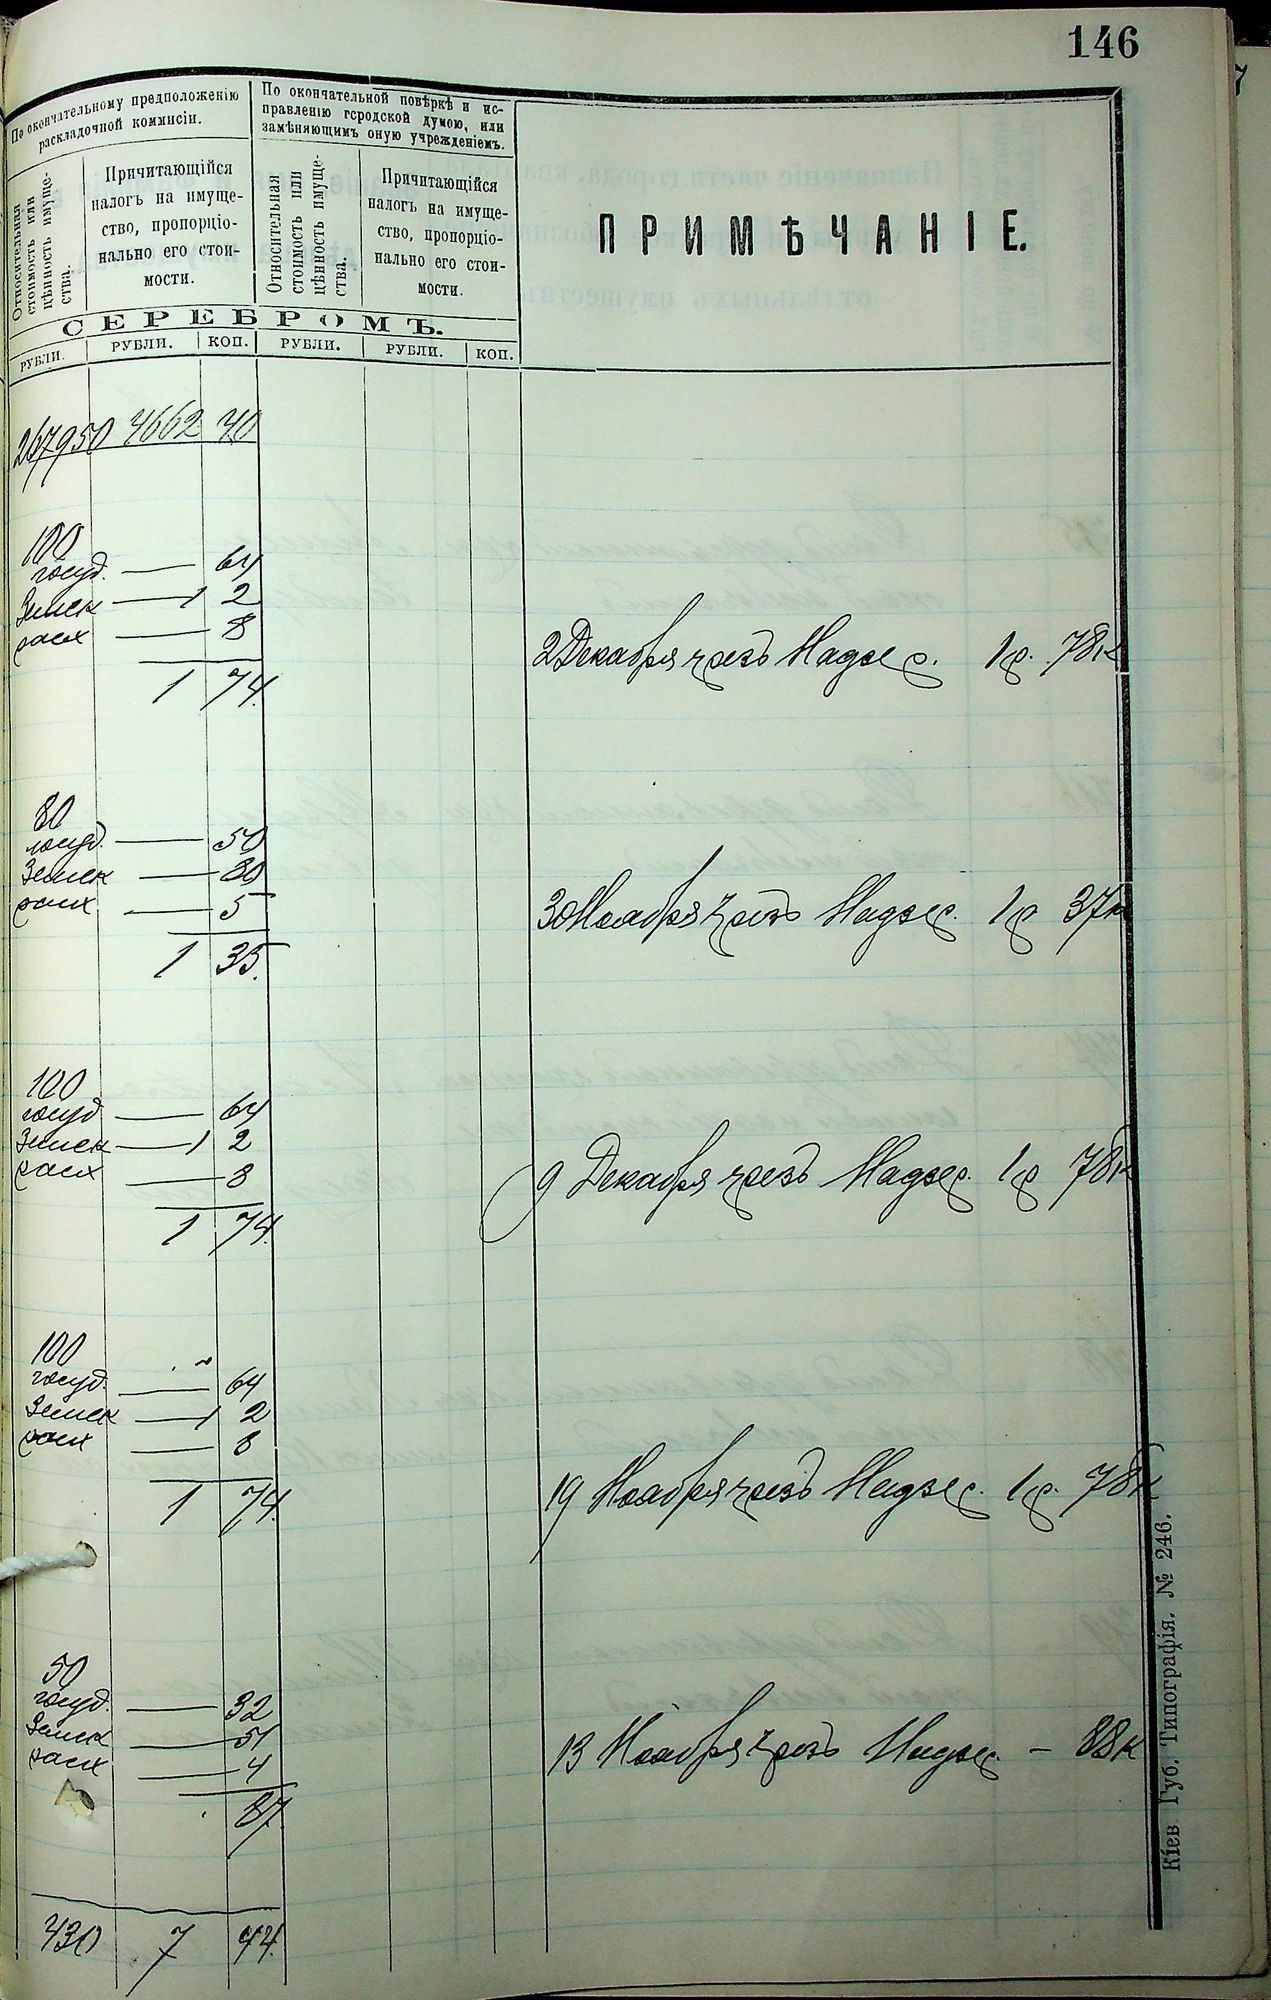 146
По окончательному предположенію
раскладочной коммисіи.
По окончательной повѣркѣ и ис-
правленію городской думою, или
замѣняющимъ оную учрежденіемъ.
Относительная
стоимость или
цѣнность имуще-
ства.
Причитающійся
налогъ на имуще-
ство, пропорціо-
нально его стои-
мости.
Относительная
стоимость или
цѣнность имуще-
ства.
Причитающійся
налогъ на имуще-
ство, пропорціо-
нально его стои-
мости.
ПРИМѢЧАНІЕ.
СЕРЕБРОМЪ.
РУБЛИ. РУБЛИ. КОП. РУБЛИ. РУБЛИ. КОП.
267950 4662 40
100
госуд. — 64
Земск — 1 2
расх — 8
1 74.
2 Декабря чрезъ Надзер. 1 р. 78 к
80
госуд. — 50
Земск — 80
расх — 5
1 35.
30 Ноября чрезъ Надзер. 1 р 37 к
100
госуд — 64
Земск — 1 2
расх — 8
1 74.
9 Декабря чрезъ Надзер. 1 р 78 к
100
госуд. — 64
Земск — 1 2
расх — 8
1 74.
19 Ноября чрезъ Надзер. 1 р. 78 к
50
госуд. — 32
Земск — 51
расх — 4
87
13 Ноября чрезъ Надзер. — 88 к
430 7 44.
Кіев. Губ. Типографія. № 246.